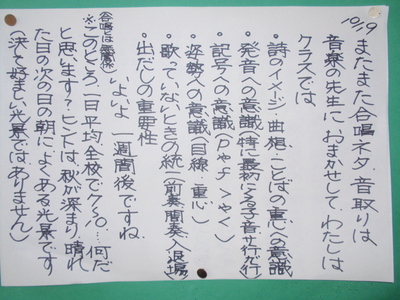 10/19
またまた合唱ネタ。音取りは
音楽の先生におまかせして、わたしは
クラスでは
・詩のイメージ・曲想・ことばの重心への意識
・発音への意識(特に最初にくる子音 サ行、カ行)
・記号への意識(p a f > や <)
・姿勢への意識(目線・重心)
・歌っていないときの統一(前奏、間奏、入退場)
・出だしの重要性
いよいよ一週間後ですね。
合唱とは無関係
※このところ、一日平均、全校で7〜10…何だ
と思います?ヒントは、秋が深まり、晴れ
た日の次の日の朝によくある光景です
(決して好ましい光景ではありません)